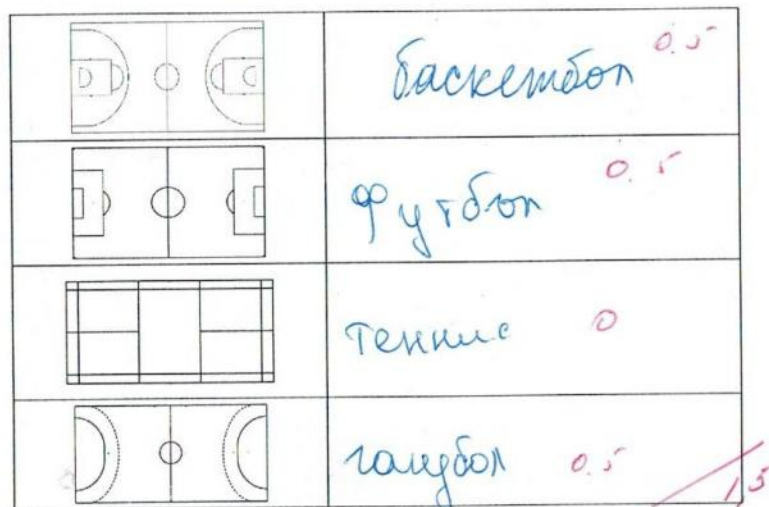 баскетбол 0.5
футбол 0.5
теннис 0
гандбол 0.5
1,5